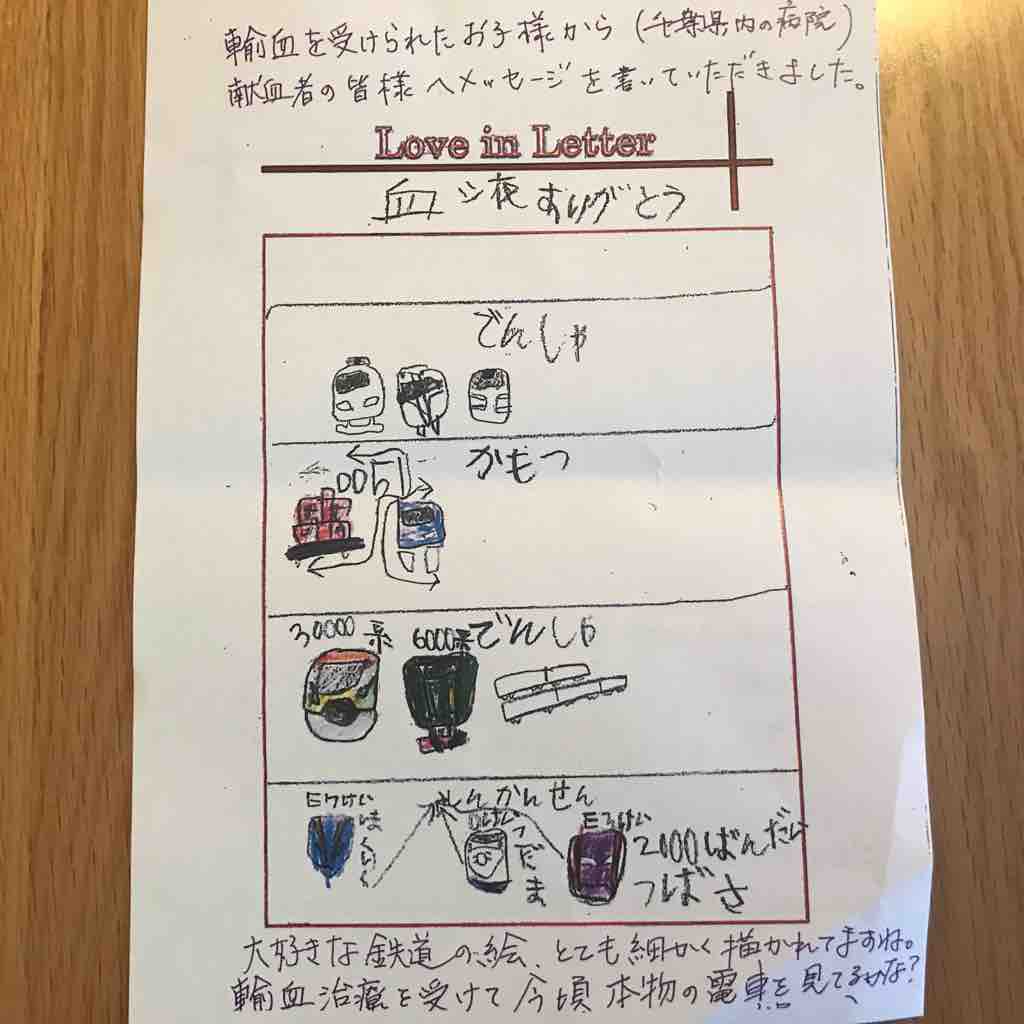 輸血を受けられたお子様から（千葉県内の病院）
献血者の皆様へメッセージを書いていただきました。
Love in Letter
血液ありがとう
でんしゃ
かもつ
DD51
30000系 6000系 でんしゃ
しんかんせん
E7けい 0けい E3けい
はくたか つだま 2100ばんだい
つばさ
大好きな鉄道の絵、とても細かく描かれてますね。
輸血治療を受けて今頃本物の電車を見てるかな？